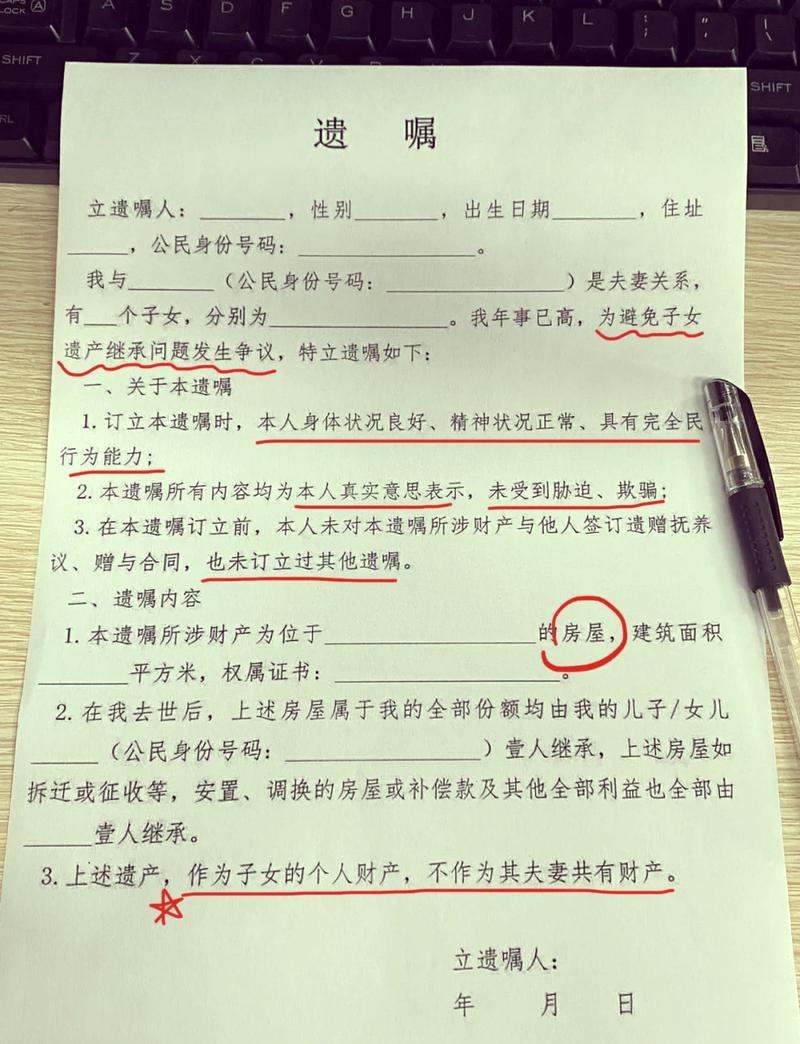 CAPS LOCK A S D F G H J K L : ; " '
SHIFT Z X C V B N M SHIFT
遗 嘱
立遗嘱人：________，性别________，出生日期________，住址
______，公民身份号码：________________。
我与________（公民身份号码：________________）是夫妻关系，
有___个子女，分别为________________。我年事已高，为避免子女
遗产继承问题发生争议，特立遗嘱如下：
一、关于本遗嘱
1.订立本遗嘱时，本人身体状况良好、精神状况正常、具有完全民
行为能力；
2.本遗嘱所有内容均为本人真实意思表示，未受到胁迫、欺骗；
3.在本遗嘱订立前，本人未对本遗嘱所涉财产与他人签订遗赠抚养
议、赠与合同，也未订立过其他遗嘱。
二、遗嘱内容
1.本遗嘱所涉财产为位于____________________的房屋，建筑面积
________平方米，权属证书：____________________。
2.在我去世后，上述房屋属于我的全部份额均由我的儿子/女儿
______（公民身份号码：__________________）壹人继承，上述房屋如
拆迁或征收等，安置、调换的房屋或补偿款及其他全部利益也全部由
______壹人继承。
3.上述遗产，作为子女的个人财产，不作为其夫妻共有财产。
立遗嘱人：
年 月 日